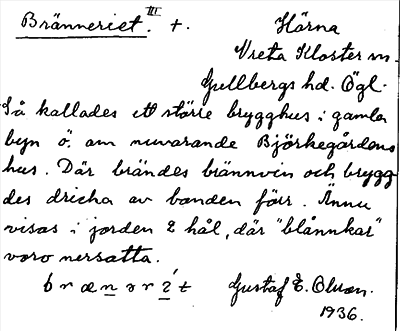 Bränneriet. III +.
Härna
Vreta Kloster sn.
Gullbergs hd. Ögl.
Så kallades ett större brygghus i gamla
byn ö. om nuvarande Björkegårdens
hus. Där brändes brännvin och brygg
des dricka av bonden förr. Ännu
visas i jorden 2 hål, där "blånnkar"
voro nersatta.
Gustaf E. Olson.
1936.